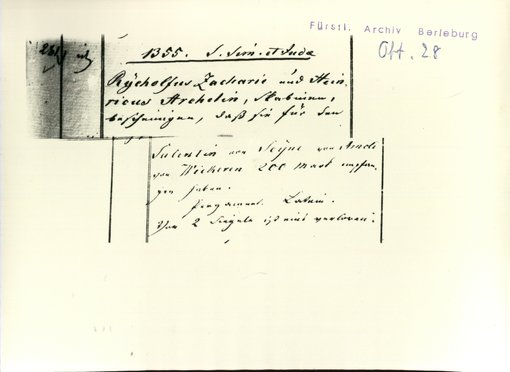 Fürstl. Archiv Berleburg
Off. 28
1355. S. Sim. et Judae
Rycholfus Zacharie und Hein-
ricus Archelin, Skabinen,
bescheinigen, daß sie für den
Salentin von Seyne von
von 200 Mark empfan-
gen haben.
Pergament. Latein.
Von 2 Siegeln ist eins verloren.